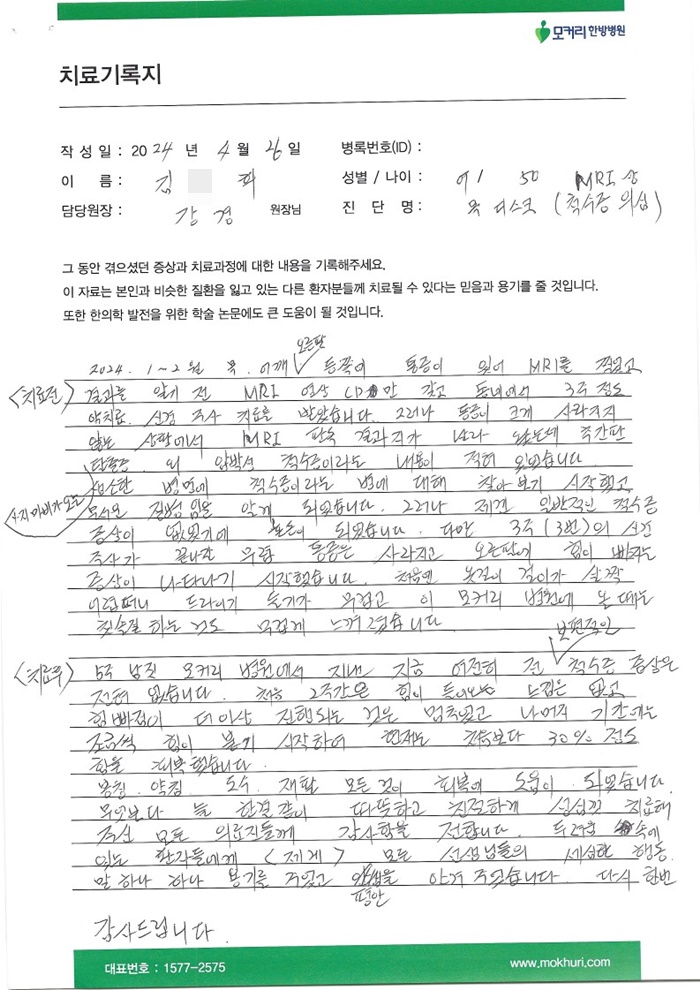 모커리한방병원
치료기록지
작성일 : 2024 년 4 월 26 일 병록번호(ID) :
이 름 : 김 화 성별 / 나이 : 여 / 50 MRI 상
담당원장 : 강 경 원장님 진 단 명 : 목 디스크 (척수증 의심)
그 동안 겪으셨던 증상과 치료과정에 대한 내용을 기록해주세요.
이 자료는 본인과 비슷한 질환을 잃고 있는 다른 환자분들께 치료될 수 있다는 믿음과 용기를 줄 것입니다.
또한 한의학 발전을 위한 학술 논문에도 큰 도움이 될 것입니다.
오른팔
2024. 1~2월 목. 어깨 등쪽에 통증이 있어 MRI를 찍었고
<치료전> 결과를 알기 전 MRI 영상 CD만 갖고 동네에서 3주 정도
약치료. 신경 주사 치료를 받았습니다. 그러나 통증이 크게 사라지지
않는 상황에서 MRI 판독 결과지가 나와 봤는데 추간판
탈출증 외 압박성 척수증이라는 내용이 적혀 있었습니다.
생소한 병명에 척수증이라는 병에 대해 찾아보기 시작했고
사지마비가 오는
무서운 질병임을 알게 되었습니다. 그러나 제겐 일반적인 척수증
증상이 없었기에 되었습니다. 다만 3주(3번)의 신경
주사가 끝나갈 무렵 통증은 사라지고 오른팔에 힘이 빠지는
증상이 나타나기 시작했습니다. 처음엔 옷걸이 걸이가 살짝
이던 드라이기 들기가 무겁고 이 모커리 병원에 올 때는
칫솔질 하는 것도 무겁게 느껴졌습니다.
보편적인
<치료후> 5주 남짓 모커리 병원에서 지낸 지금 여전히 전 척수증 증상은
전혀 없습니다. 처음 2주간은 힘이 들어오는 느낌은 없고
힘빠짐이 더이상 진행되는 것은 멈추었고 나머지 기간에는
조금씩 힘이 붙기 시작하여 현재는 처음보다 30% 정도
힘을 회복했습니다.
봉침. 약침. 도수. 재활 모든것이 회복에 도움이 되었습니다.
무엇보다 늘 한결같이 따뜻하고 친절하게 성심껏 치료해
주신 모든 의료진들께 감사함을 전합니다. 두려움 속에
있는 환자들에게 <제게> 모든 선생님들의 세심한 행동.
말 하나 하나 용기를 주었고 평안을 안겨 주었습니다. 다시 한번
감사드립니다.
대표번호 : 1577-2575 www.mokhuri.com